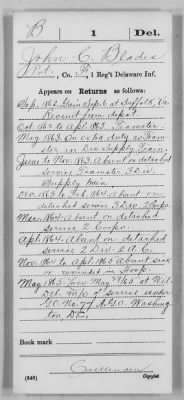 B | 1 | Del.
John C. Blades
Pvt., Co. F, 1 Reg't Delaware Inf.
Appears on Returns as follows:
Sep. 1862 Gain Sept 6 at Suffolk, Va
Recruit from depot
Oct. 1862 to Apl. 1863. Teamster
May 1863. On extra duty as Team-
ster in Div. Supply Train.
June to Nov. 1863. Absent on detached
service Teamster, 3 Div.
Supply train
Dec. 1863 & Feb. 1864 absent on
detached service 3 Div. 2 Corps.
Mar. 1864 absent on detached
service 2 Corps.
Apl. 1864. Absent on detached
service 2 Div. 2 A.C.
Nov. 1864 to Apl. 1865 absent sick
or wounded in Hosp.
May 1865. Loss May 29/65 at Wil.
Del. M/o of service under
G.O. No. 77 A.G.O. Washing-
ton, D.C.
Book mark
(546)
Copyist.